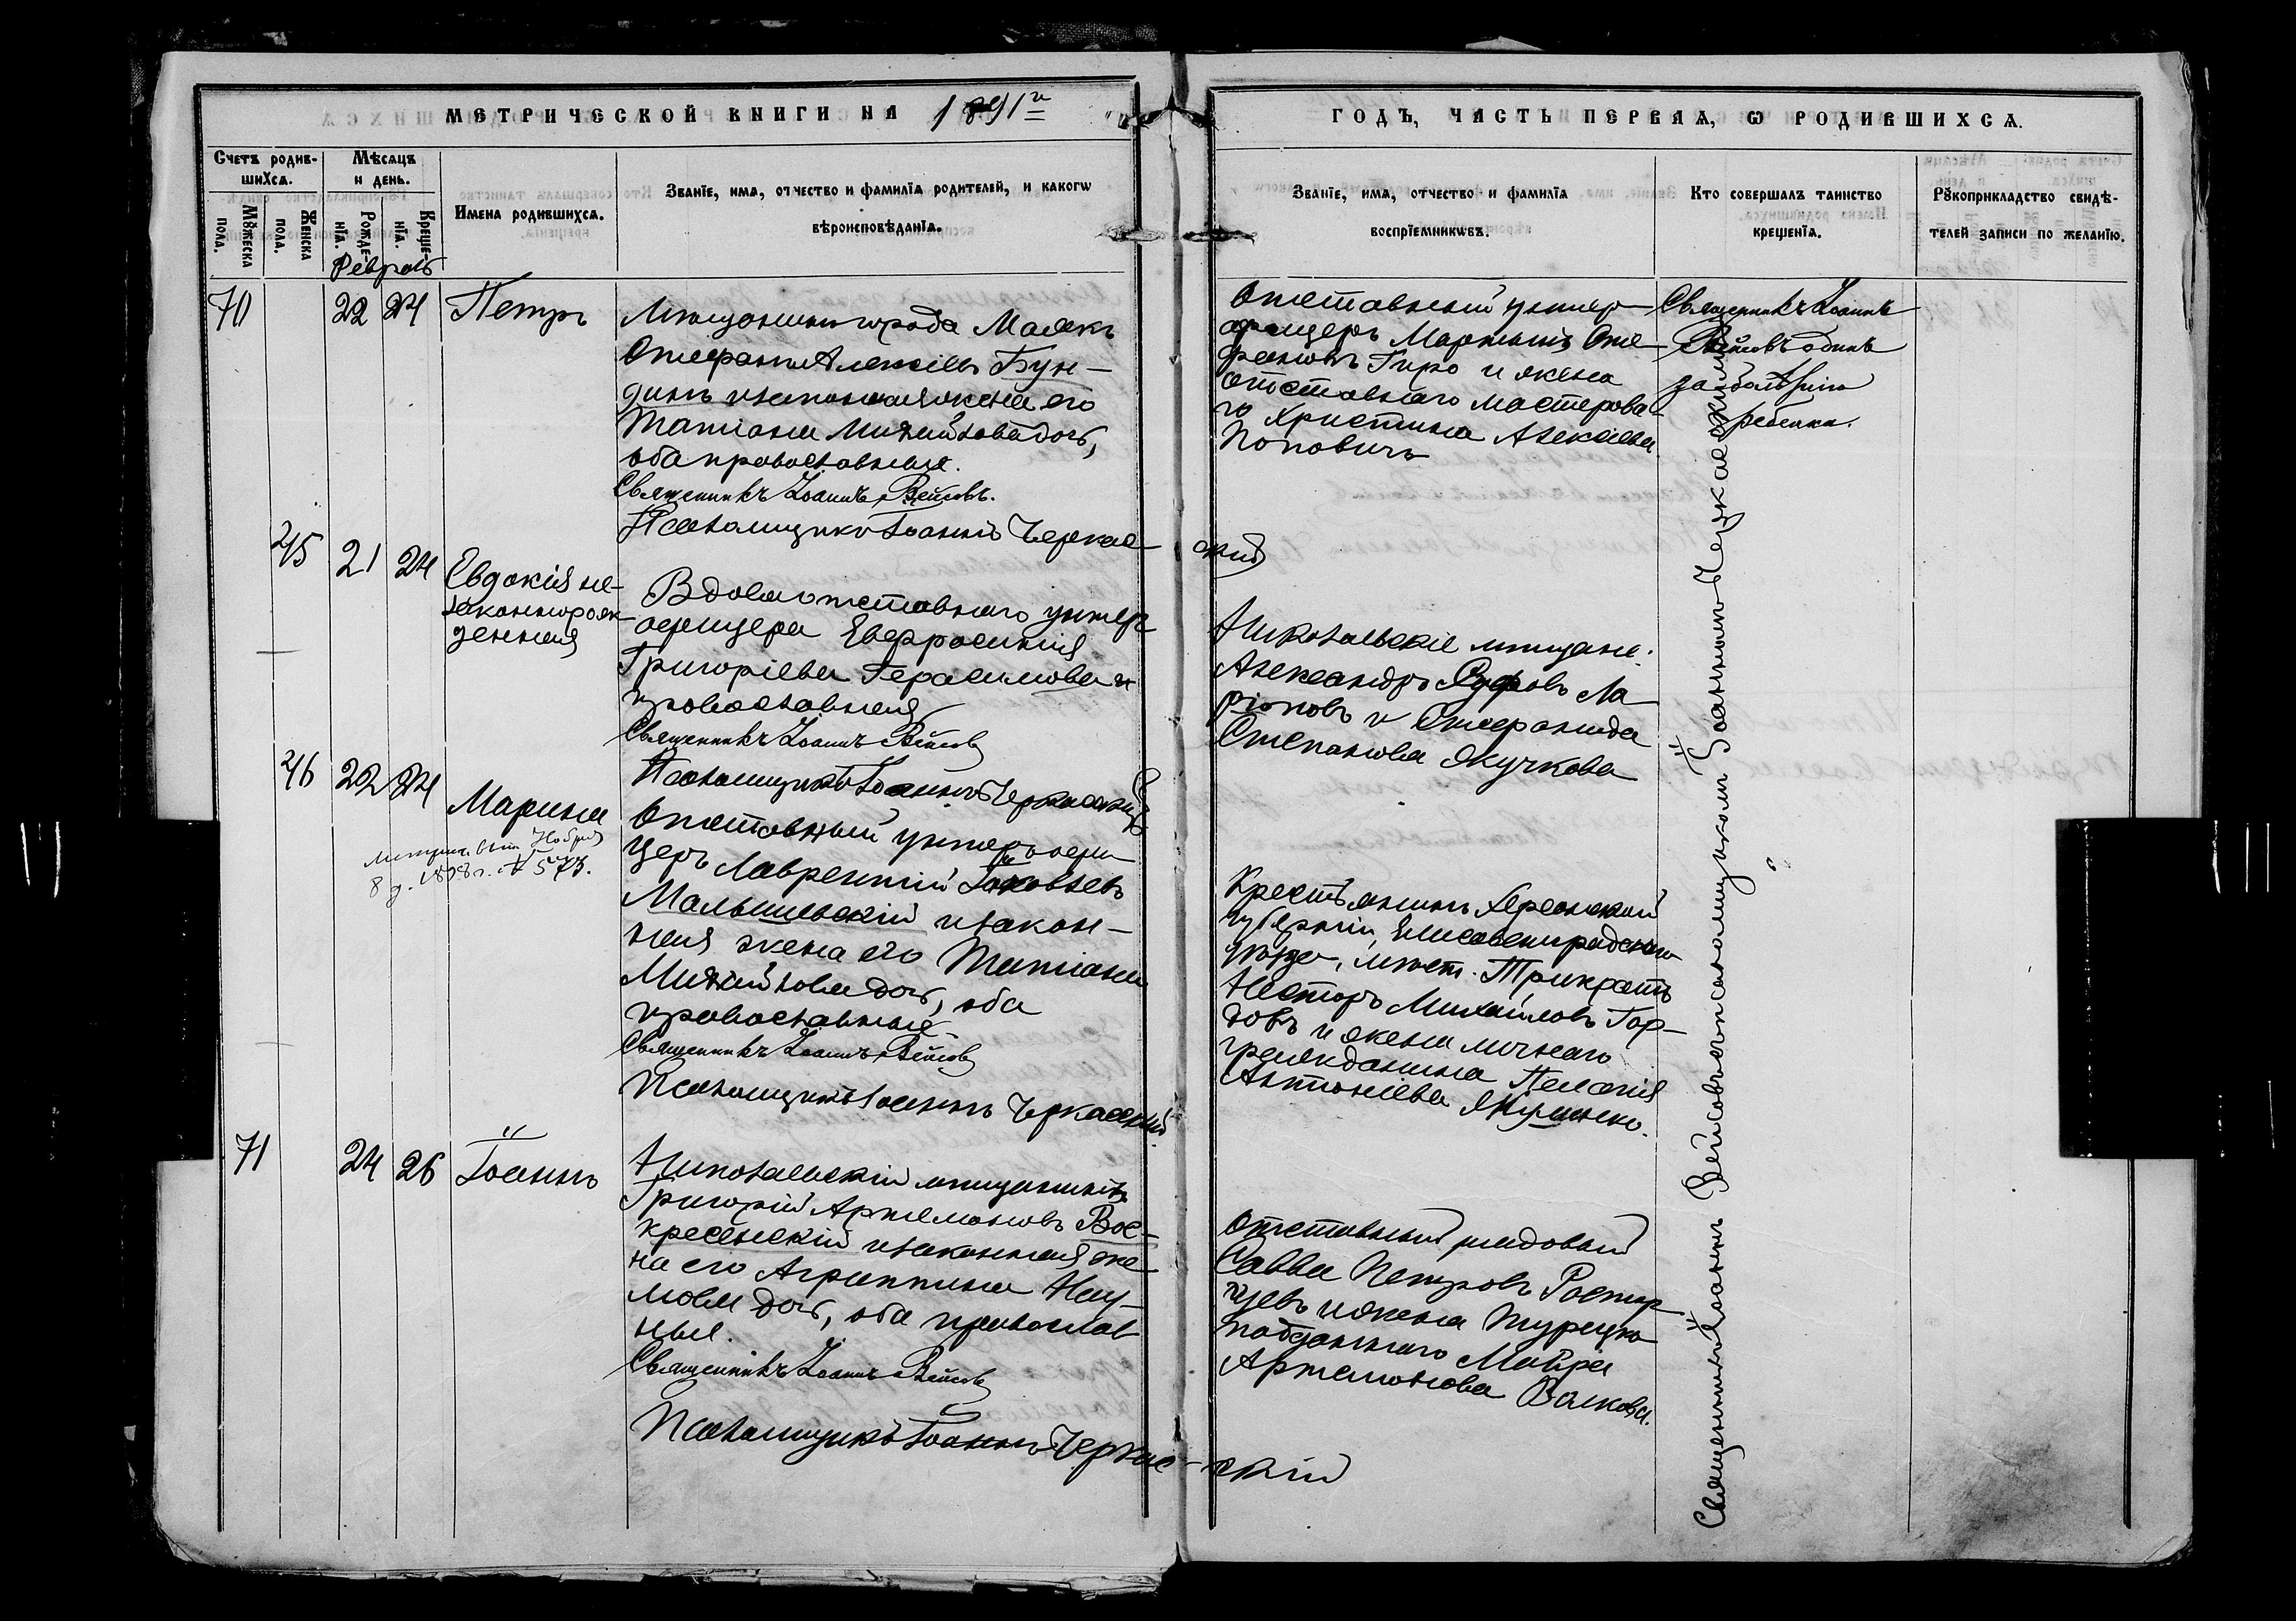 МЕТРИЧЕСКОЙ КНИГИ НА 1891й
ГОДЪ, ЧАСТЬ ПЕРВАЯ, Ѡ РОДИВШИХСѦ.
Счетъ родив-
шихсѧ.
Мѣсѧцъ
и день.
Мꙋжеска
пола.
Женска
пола.
Рожде-
нїѧ.
Креще-
нїѧ.
Имена родившихсѧ.
Званїе, имѧ, отчество и фамилїѧ родителей, и какогѡ
вѣроисповѣданїѧ.
Званїе, имѧ, отчество и фамилїѧ
воспрїемникѡвъ.
Кто совершалъ таинство
крещенїѧ.
Рꙋкоприкладство свидѣ-
телей записи по желанїю.
Февраль
70 22 24 Петръ
Мѣщанинъ города Маякъ
Стефанъ Алексіевъ Бун-
динъ и законная жена его
Татіана Михайлова дочь,
оба православные.
Священникъ Іоаннъ Вейсовъ.
Псаломщикъ Іоаннъ Черкас-
скій
Отставный унтеръ-
офицеръ Мартинъ Сте-
фановъ Гиро и жена
отставнаго мастерова-
го Христина Алексіева
Поповичъ
Священникъ Іоаннъ
Вейсовъ одинъ
за болѣзнію
ребенка.
45 21 24 Евдокія не-
законнорож-
денная
Вдова отставнаго унтеръ
офицера Евфросинія
Григоріева Герасимова
православная
Священникъ Іоаннъ Вейсовъ
Псаломщикъ Іоаннъ Черкасскій
Николаевскіе мѣщане:
Александръ Ла
ріоновъ и Стефанида
Степанова Жучкова
46 22 24 Марина
8 д. 1898 г. №
Отставный унтеръ-офи-
церъ Лаврентій Іаковлевъ
Малышевскій и закон-
ная жена его Татіана
Михайлова дочь, оба
православные
Священникъ Іоаннъ Вейсовъ
Псаломщикъ Іоаннъ Черкасскій
Крестьянинъ Херсонской
губерніи, Елисаветградскаго
уѣзда, мѣст. Трикратъ
Несторъ Михайловъ Гор-
довъ и жена личнаго
гражданина Пелагія
Антоніева
71 24 26 Іоаннъ
Николаевскій мѣщанинъ
Григорій Артемоновъ Вос-
кресенскій и законная же
на его Агриппина Нау-
мова дочь, оба православ
ные.
Священникъ Іоаннъ Вейсовъ
Псаломщикъ Іоаннъ Черкас-
скій
Отставный рядовый
Савва Петровъ Ростор
гуевъ и жена турецко
подданнаго Мавра
Артемонова Волкова.
Священникъ Іоаннъ Вейсовъ съ псаломщикомъ Іоанномъ Черкасскимъ